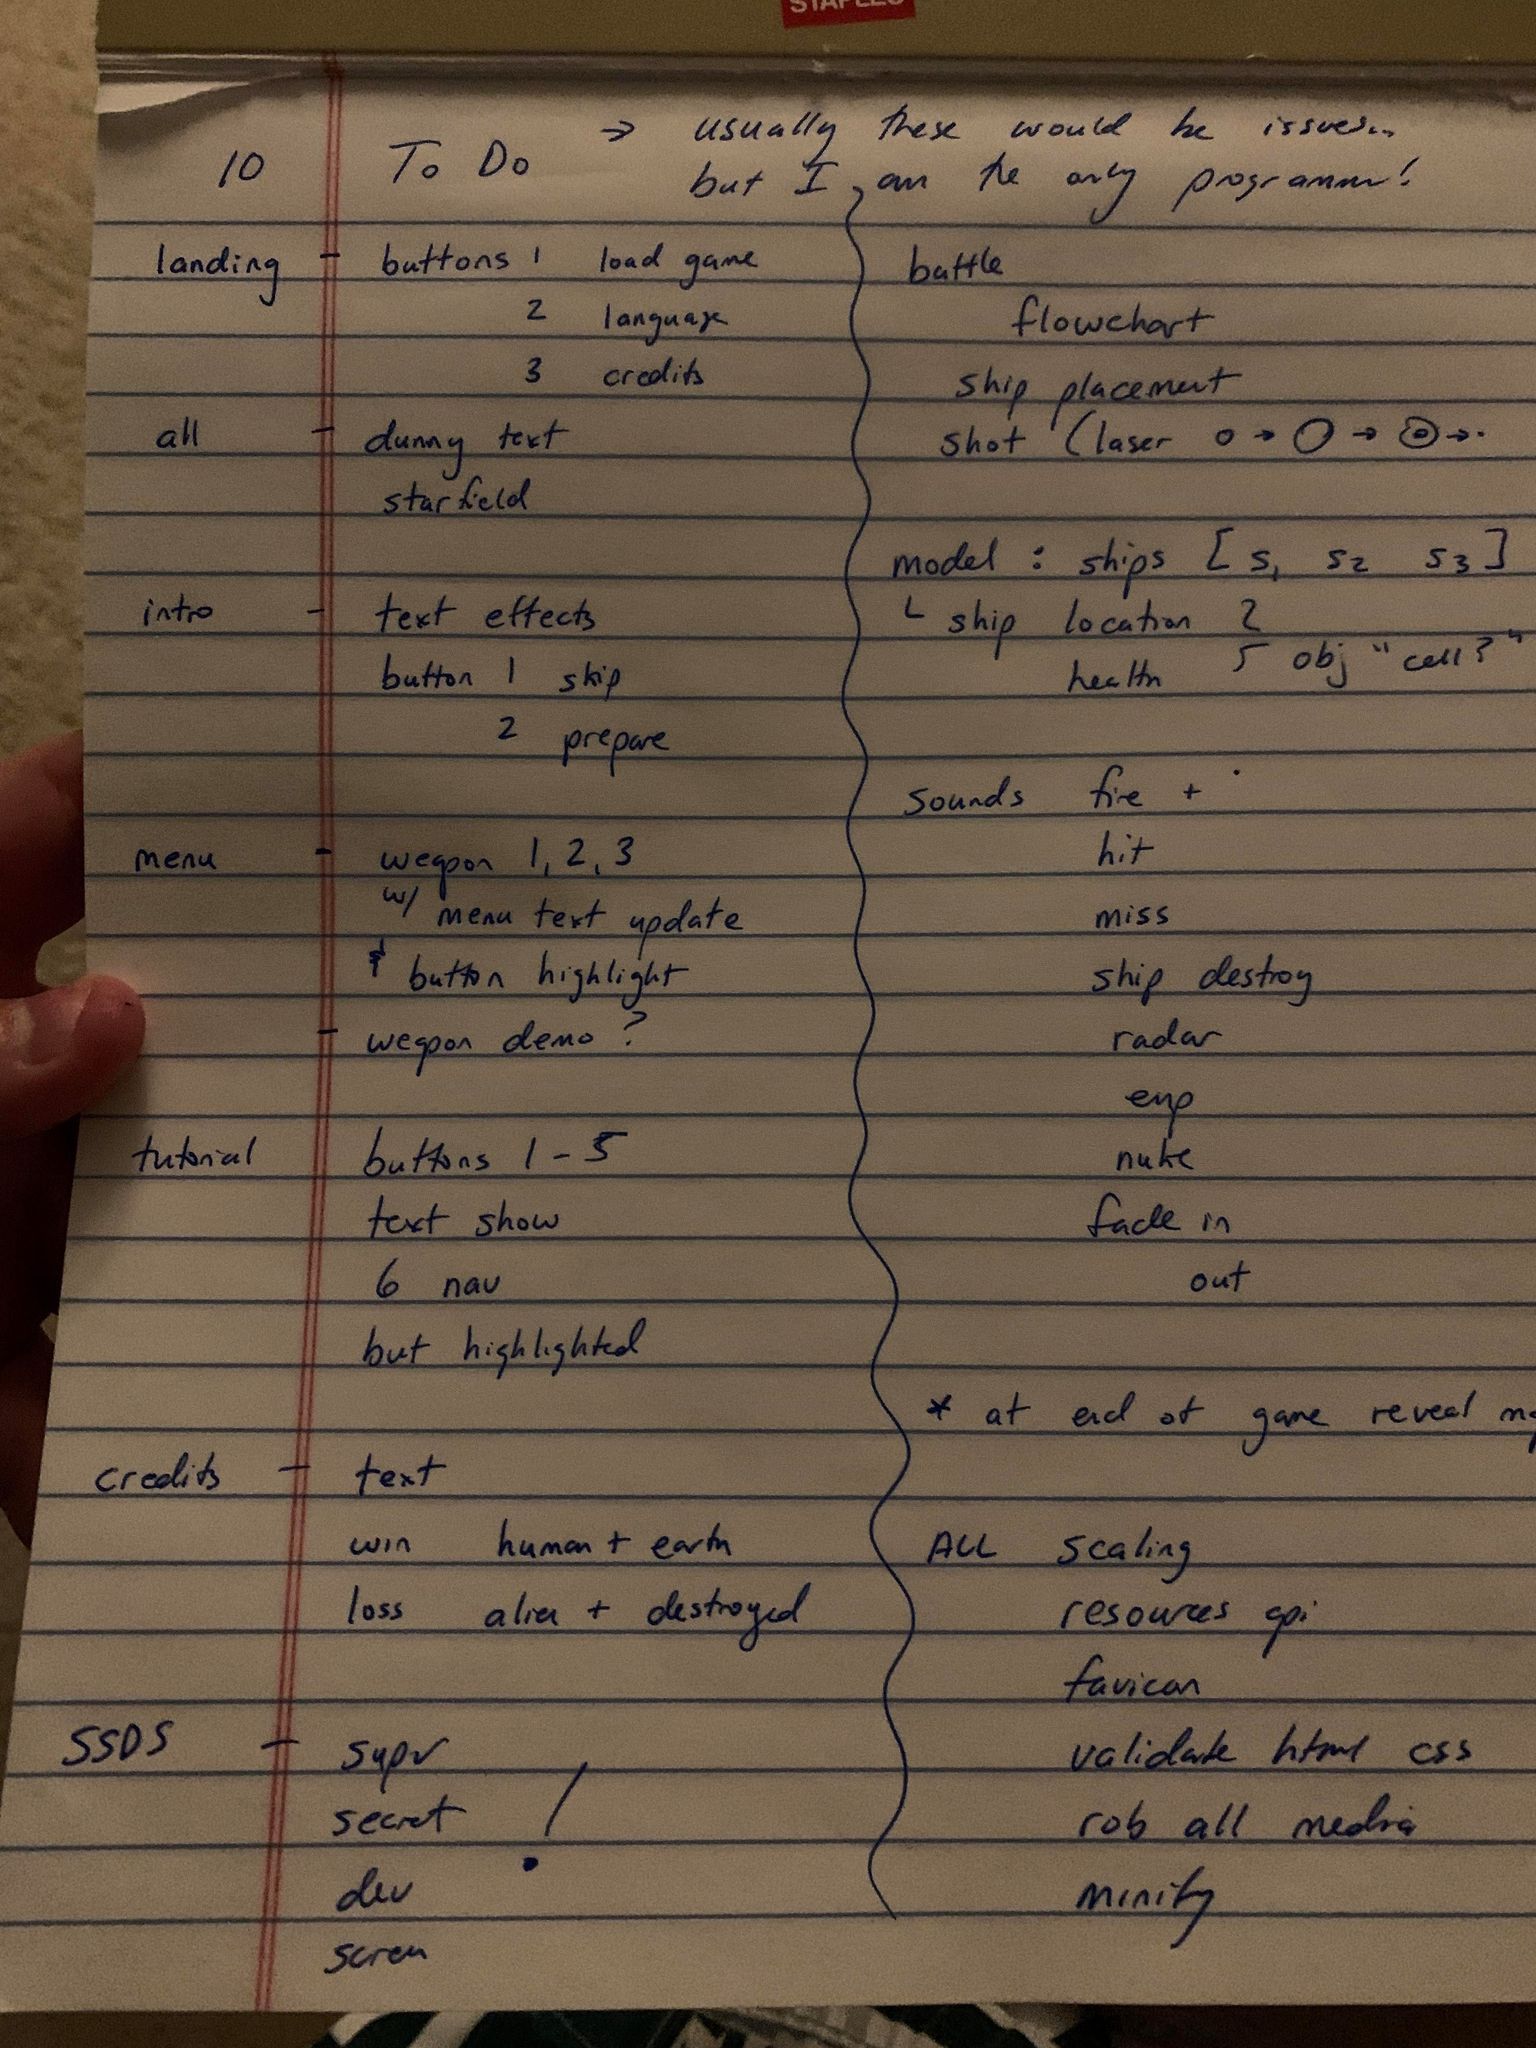 STAPLES
10 To Do → usually these would be issues...
but I am the only programmer!
landing - buttons 1 load game
2 language
3 credits
all - dummy text
starfield
intro - text effects
button 1 skip
2 prepare
menu - wegpon 1, 2, 3
w/ menu text update
& button highlight
- wegpon demo ?
tutorial buttons 1-5
text show
6 nav
but highlighted
credits - text
win human + earth
loss alien + destroyed
SSDS - supr
secret !
dev
screen
battle
flowchart
ship placement
shot (laser
model : ships [ s1 s2 s3 ]
└ ship location 2
health 5 obj "cell?"
sounds fire +
hit
miss
ship destroy
radar
emp
nuke
fade in
out
* at end of game reveal
ALL scaling
resources api
favicon
validate html css
rob all media
minify